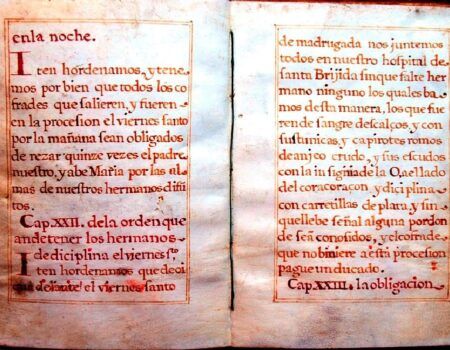 enla noche.
Iten hordenamos, y tene
mos por bien que todos los co
frades que salieren, y fueren
en la procesion el viernes santo
por la mañana sean obligados
de rezar quinze vezes el padre
nuestro, y abe Maria por las ani
mas de nuestros hermanos difũ
tos.
Cap. XXII. dela orden que
an de tener los hermanos
de diciplina el viernes sto
Iten hordenamos que de oi
el viernes santo
de madrugada nos juntemos
todos en nuestro hospital de
santa Brijida sin que falte her
mano ninguno los quales ba
mos desta manera, los que fue
ren de sangre descalços, y con
sus tunicas, y capirotes romos
de anjeo crudo, y sus escudos
con la insignia de
del coracoraçon, y diciplina
con carretillas de plata, y sin
que llebe señal alguna por don
de señ conosidos, y el cofrade
que no biniere a está procesion
pague un ducado.
Cap. XXIII. la obligacion